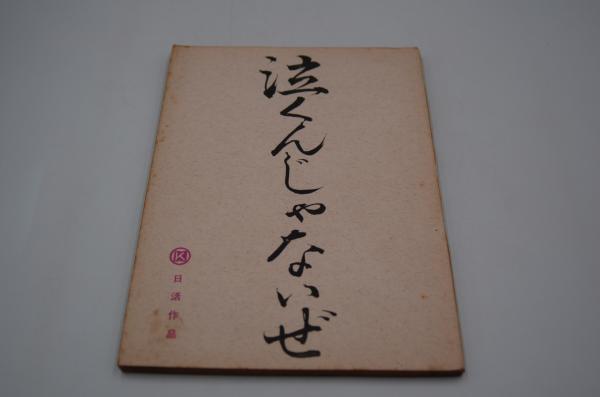 泣くんじゃないぜ
日活作品